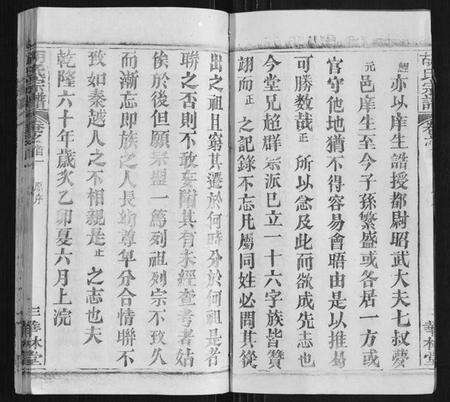 胡氏宗譜
卷之首
華林堂
趙亦以庠生誥授都尉昭武大夫七叔夢
元邑庠生至今子孫繁盛或各居一方或
官守他地猶不得容易會晤由是以推曷
可勝數哉正 所以念及此而欲成先志也
今堂兄超群宗派已立一十六字族皆贊
翊而正 之記錄不忘凡屬同姓必問其從
出之祖且窮其遷於何時分於何祖是者
聯之否則不敢妄 其有未經查考者姑
俟於後但願宗盟一篇刻祖刻宗不致久
而漸忘即族之人長幼尊卑分合情聯不
致如秦越人之不相親是正 之志也夫
乾隆六十年歲次乙卯夏六月上浣
胡氏宗譜
卷之首一
原序
三
華林堂